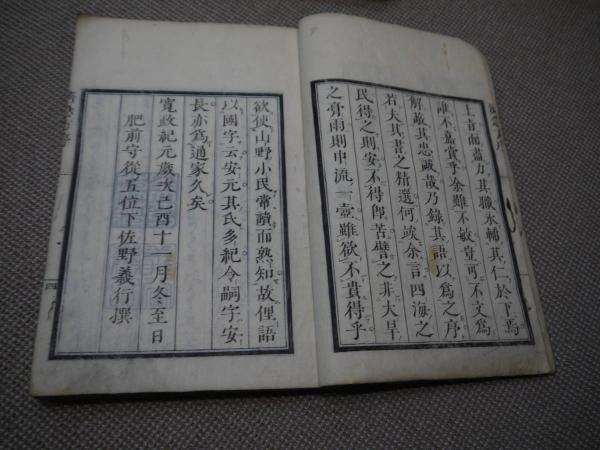 上旨而盡力其職永輔其仁於下焉
誰不嘉賞乎余雖不敏豈可不文爲
解哉其忠誠哉乃錄其語以爲之序
若夫其書之精選何竢余言四海之
民得之則安不得卽苦譬之非大旱
之膏雨則中流一壺雖欲不貴得乎
欲使山野小民常讀而熟知故俚語
以國字云安元其氏多紀今嗣字安
長亦爲通家久矣
寬政紀元歲次己酉十一月冬至日
肥前守從五位下佐野義行撰